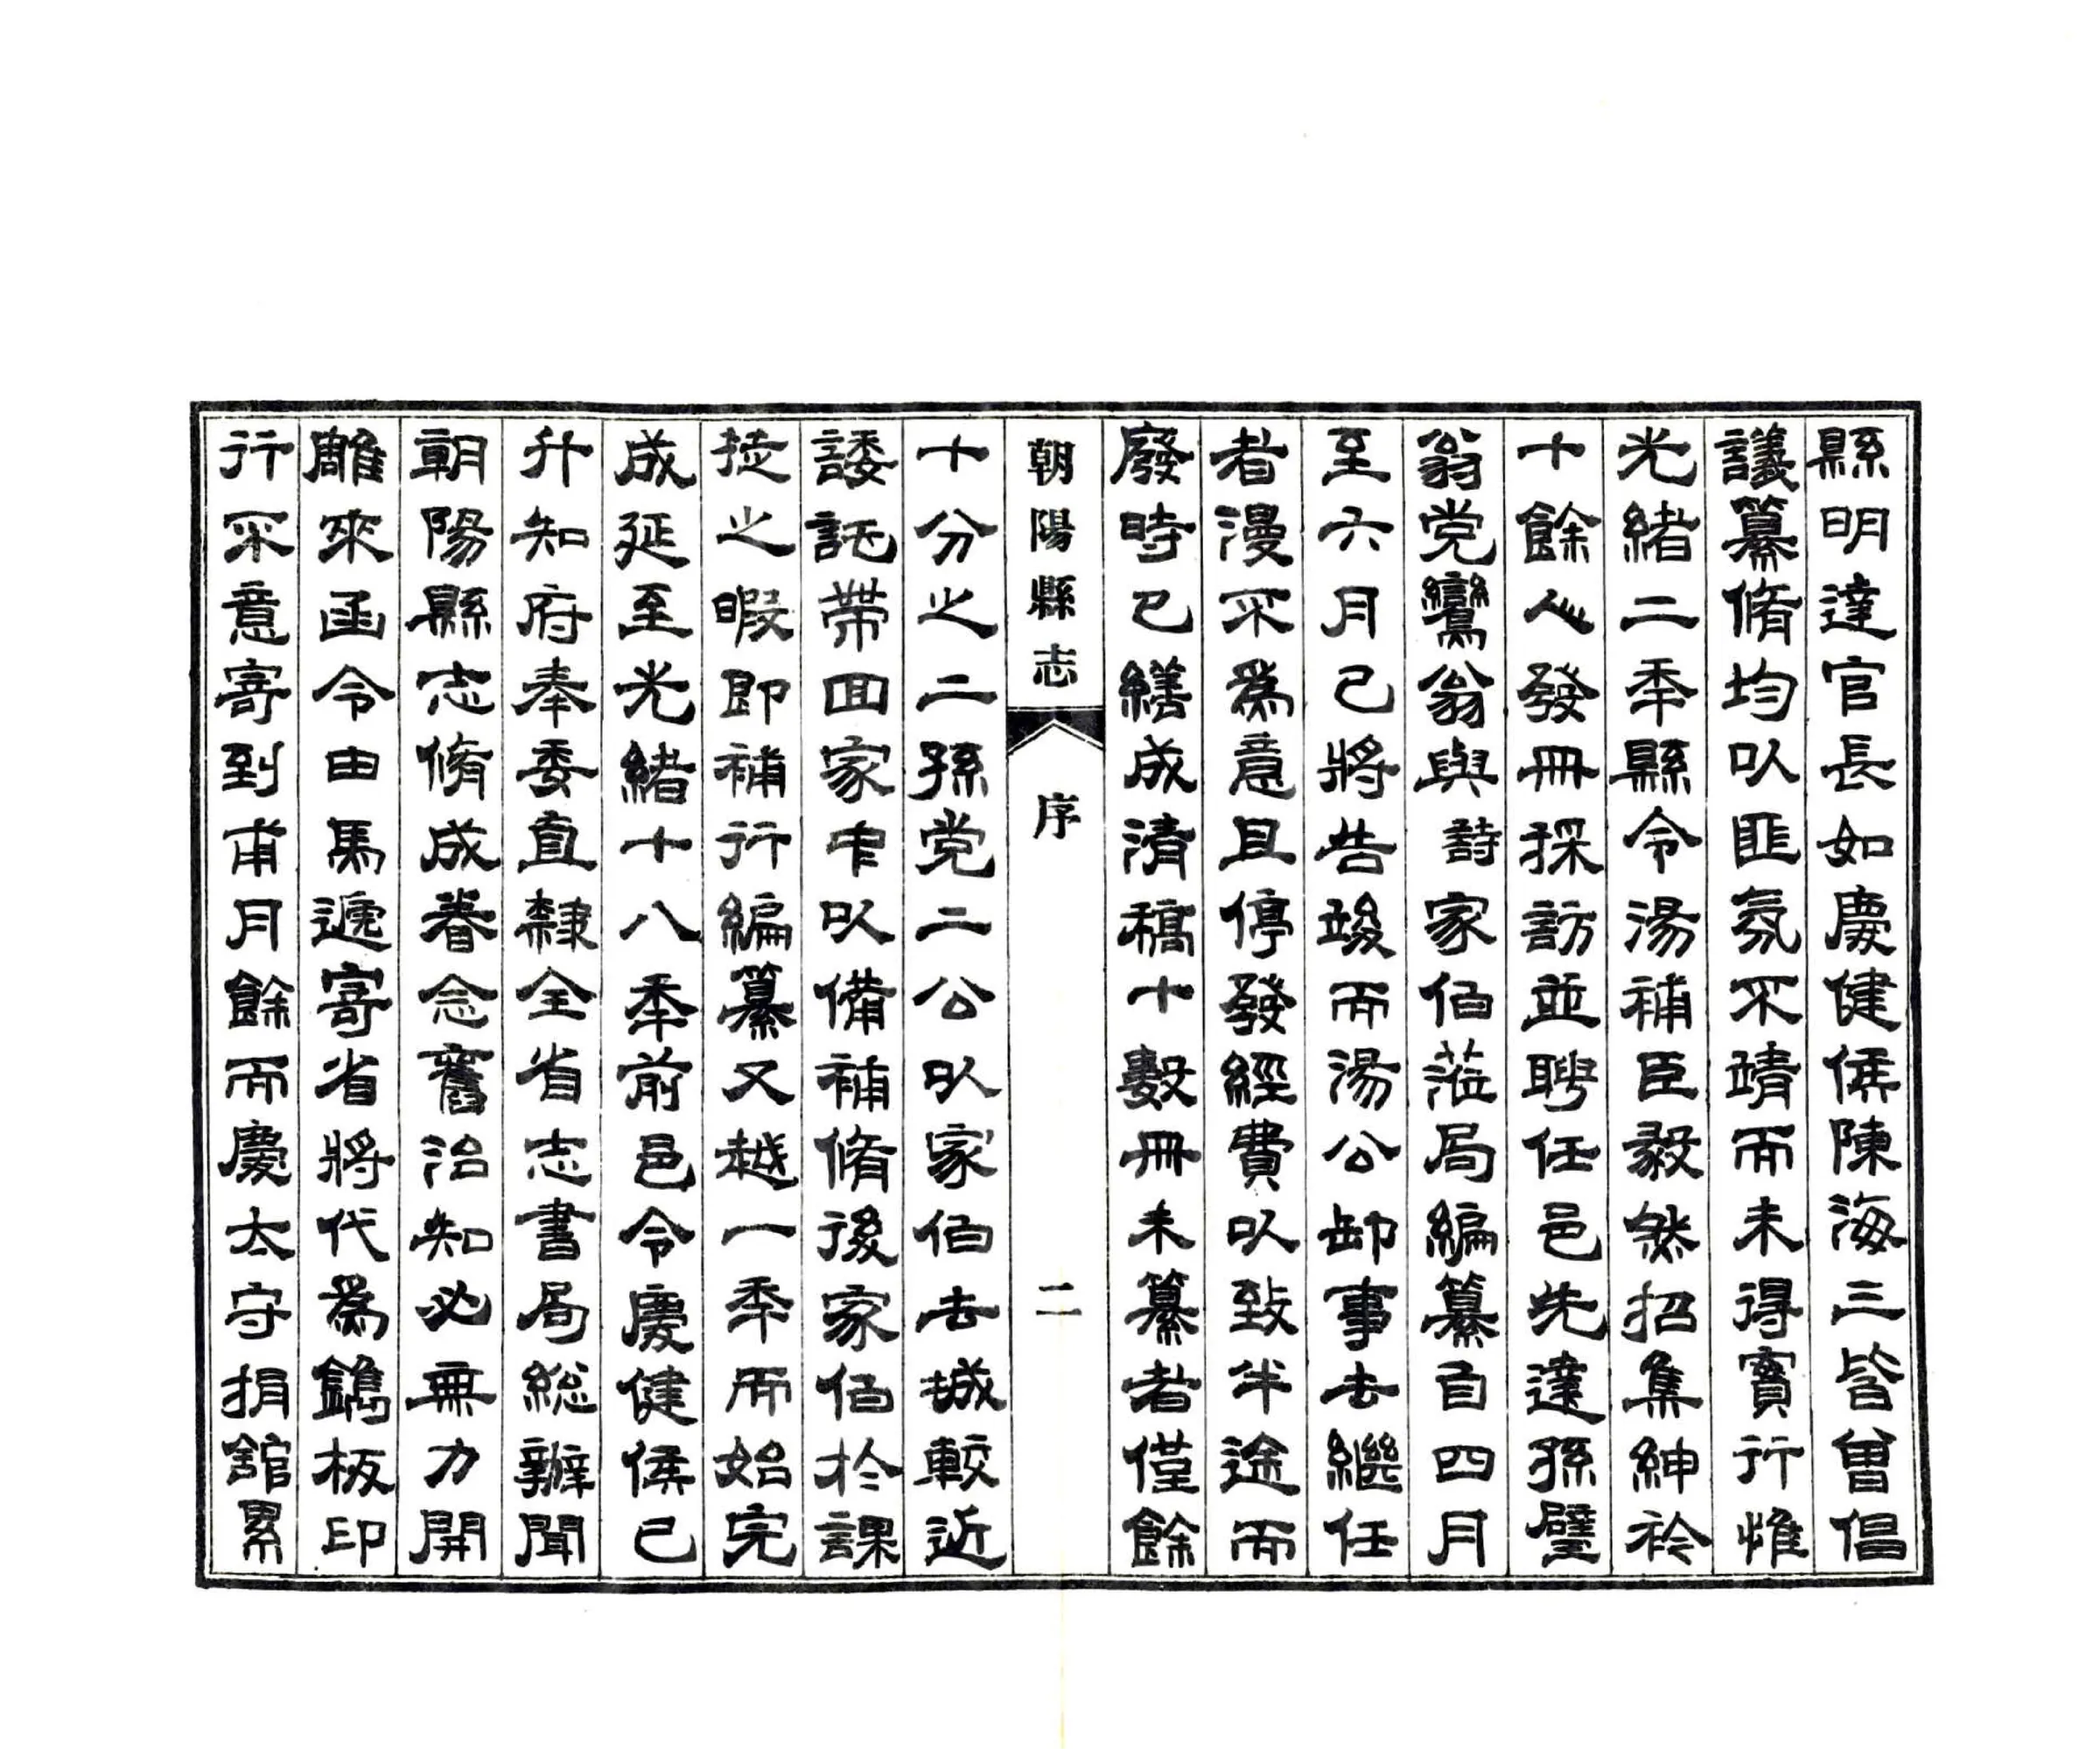 縣明達官長如慶健侯陳海三皆曾倡
議纂脩均以匪氛不靖而未得實行惟
光緒二年縣令湯補臣毅然招集紳衿
十餘人發冊採訪並聘任邑先達孫璧
翁党鸞翁與詩家伯蒞局編纂自四月
至六月已將告竣而湯公卸事去繼任
者漫不爲意且停發經費以致半途而
廢時已繕成清稿十數冊未纂者僅餘
朝陽縣志 序 二
十分之二孫党二公以家伯去城較近
諉託帶回家中以備補脩後家伯於課
徒之暇即補行編纂又越一年而始完
成延至光緒十八年前邑令慶健侯已
升知府奉委直隸全省志書局総辦聞
朝陽縣志脩成眷念舊治知必無力開
雕來函令由馬遞寄省將代爲鐫板印
行不意寄到甫月餘而慶太守捐舘累